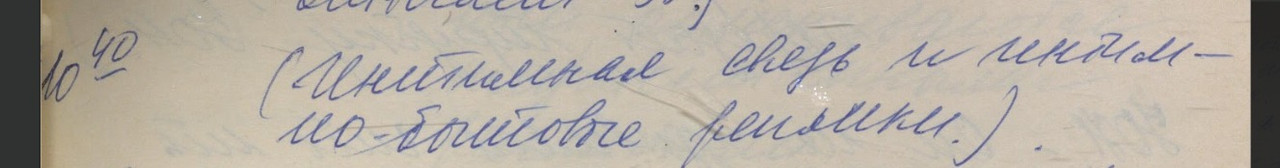 10 40 (Интимная связь и интим-
но-бытовые реплики.).